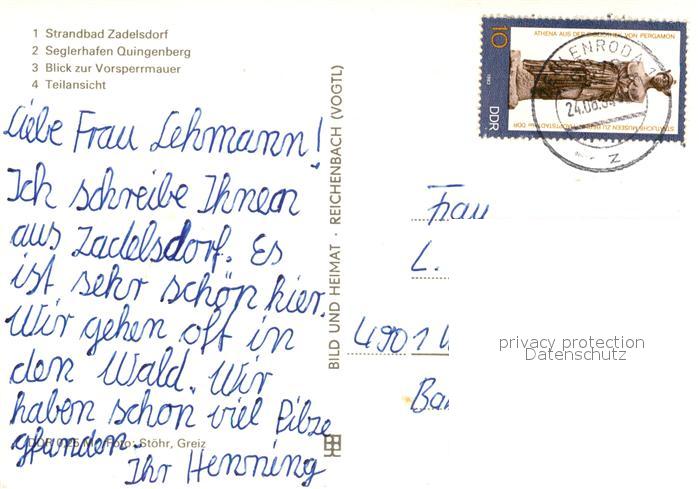 1 Strandbad Zadelsdorf
2 Seglerhafen Quingenberg
3 Blick zur Vorsperrmauer
4 Teilansicht
Liebe Frau Lehmann!
Ich schreibe Ihnen
aus Zadelsdorf. Es
ist sehr schön hier.
Wir gehen oft in
den Wald. Wir
haben schon viel Pilze
gfunden.
Ihr Henning
Foto: Stöhr, Greiz
BILD UND HEIMAT · REICHENBACH (VOGTL)
10
ATHENA AUS DER VON PERGAMON
STAATLICHE MUSEEN ZU
DDR
24.08.
Z
Frau
L.
4901
privacy protection
Datenschutz